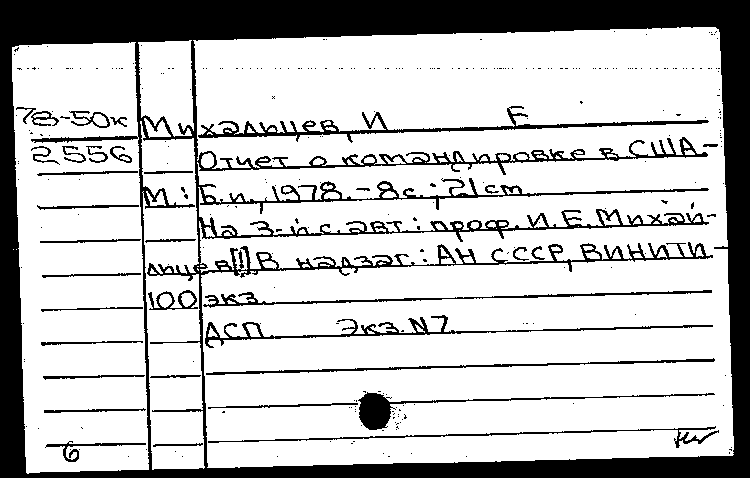 78-50к Михальцев, И Е
2556 Отчет о командировке в США.-
М.: Б.и., 1978.-8с.; 21см.
На 3-й с. авт.: проф. И.Е. Михай-
льцев||| В надзаг.: АН СССР, ВИНИТИ-
100 экз.
ДСП. Экз. N7.
6